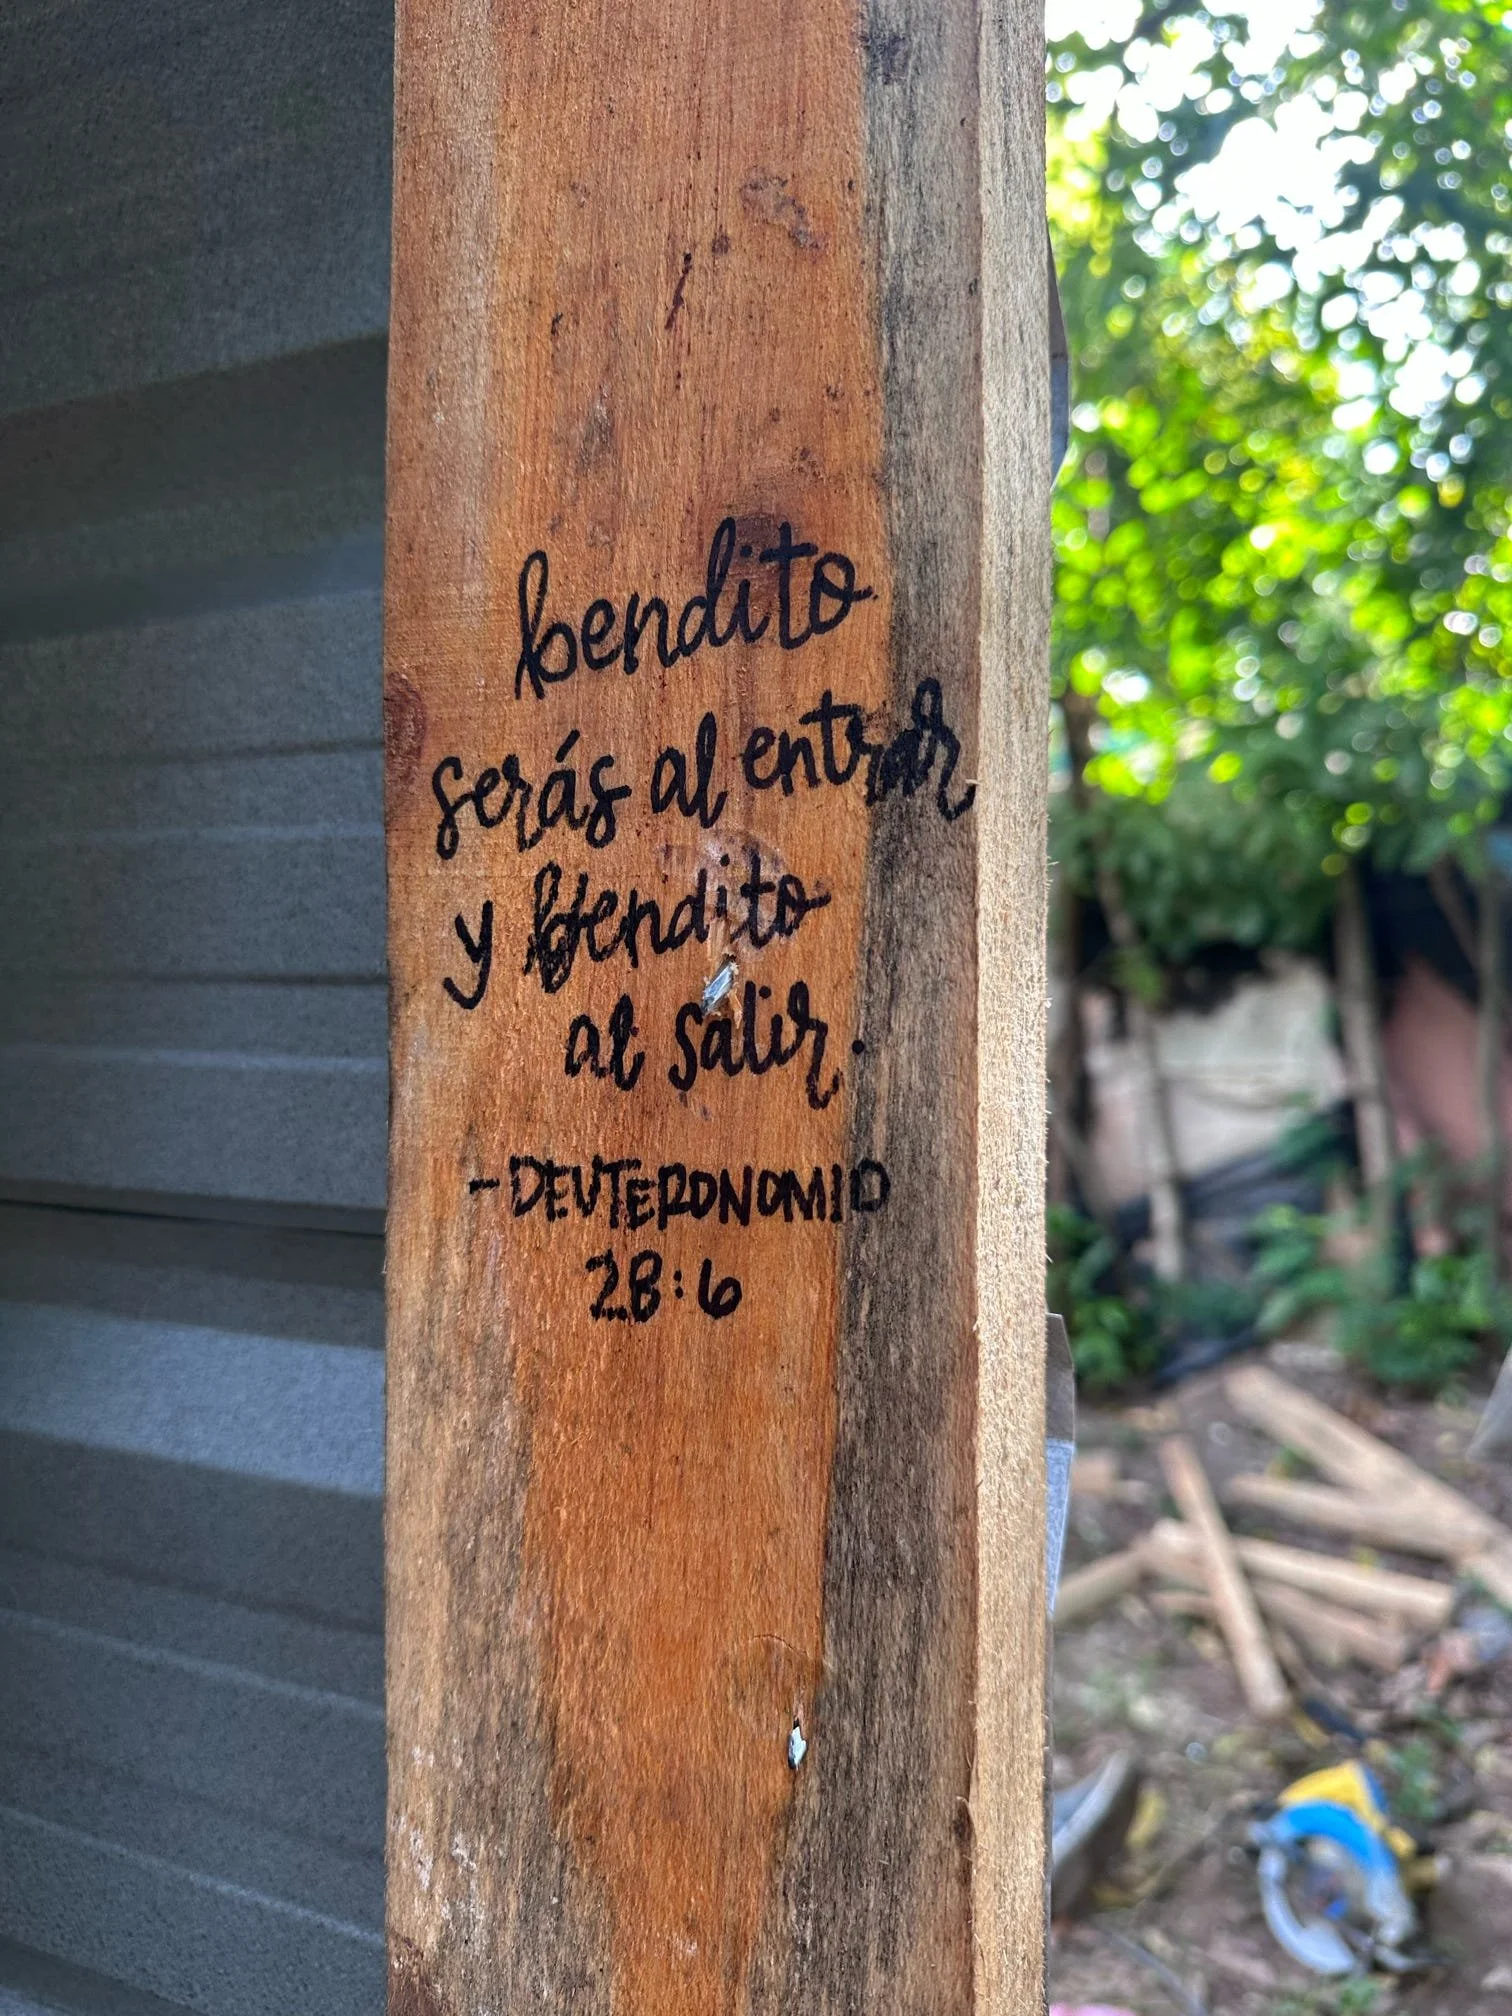 bendito
serás al entrar
y bendito
al salir.
-DEUTERONOMIO
28:6